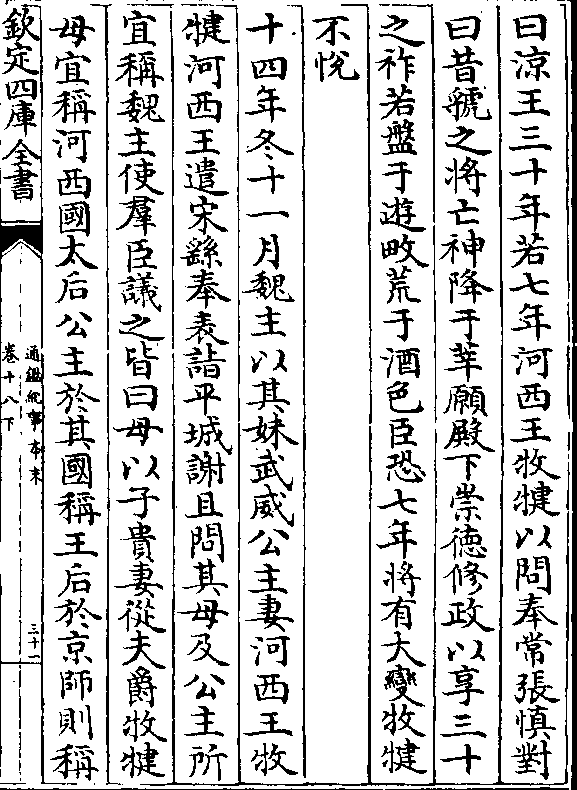 曰涼王三十年若七年河西王牧犍以問奉常張慎對
曰昔虢之將亡神降于莘願殿下崇德修政以享三十
之祚若盤于遊畋荒于酒色臣恐七年將有大變牧犍
不悅
十四年冬十一月魏主以其妹武威公主妻河西王牧
犍河西王遣宋繇奉表詣平城謝且問其母及公主所
宜稱魏主使羣臣議之皆曰母以子貴妻從夫爵牧犍
母宜稱河西國太后公主於其國稱王后於京師則稱
欽定四庫全書
通鑑紀事本末
卷十八下
三十一